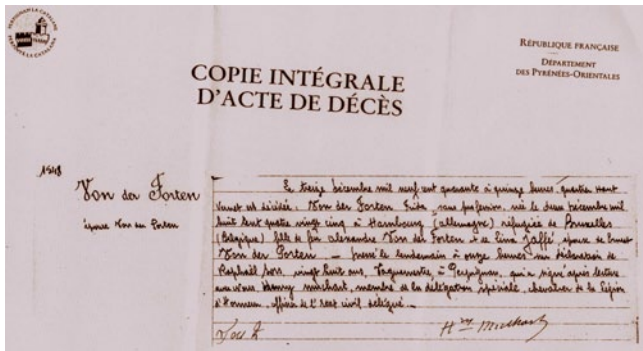 PERPIGNAN LA CATALANE
RÉPUBLIQUE FRANÇAISE
DÉPARTEMENT
DES PYRÉNÉES-ORIENTALES
COPIE INTÉGRALE
D'ACTE DE DÉCÈS
1548
Von der Porten
épouse Von der Porten
Le treize décembre mil neuf cent quarante à quinze heures, quartier Haut
Vernet est décédée, Von der Porten Frida, sans profession, née le décembre mil
huit cent quatre vingt cinq à Hambourg (Allemagne) réfugiée de Bruxelles
(Belgique) fille de feu Alexandre Von der Porten et de Lina Jaffé, épouse de Ernest
Von der Porten — Dressé le lendemain à onze heures sur déclaration de
Raphaël Sors, vingt huit ans, Vaguemestre, à Perpignan, qui a signé après lecture
avec nous Henry Muchart, membre de la délégation spéciale, chevalier de la Légion
d'Honneur, officier de l'état civil délégué.—
Sors R
Hry Muchart